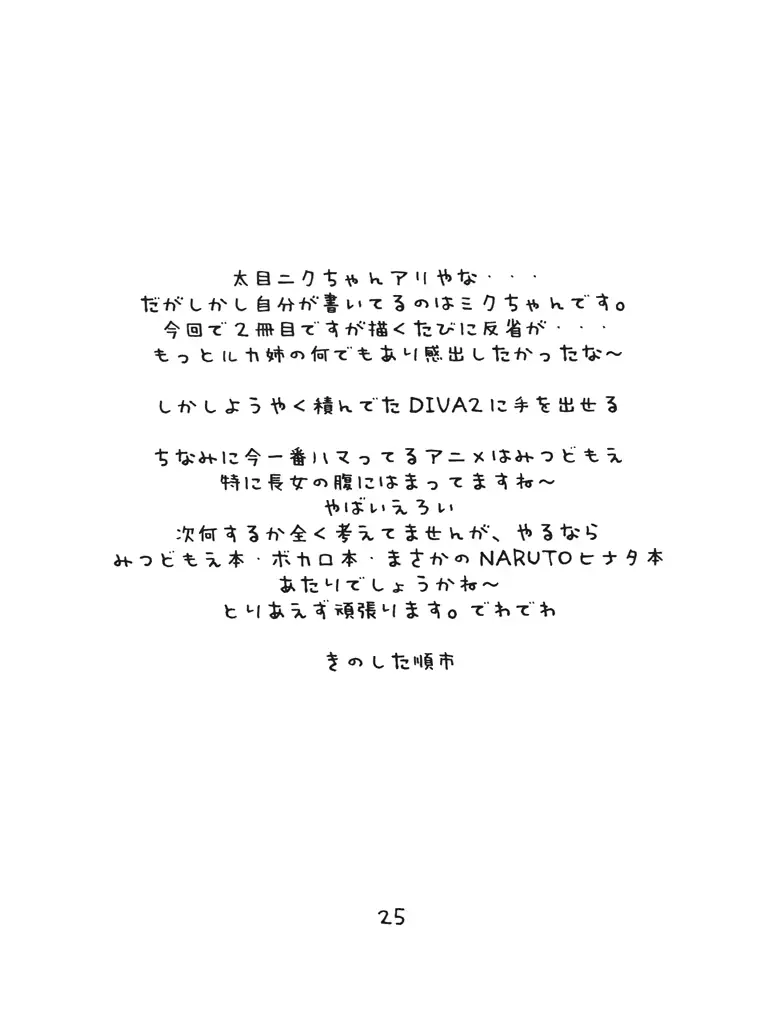 太目ニクちゃんアリやな・・・
だがしかし自分が書いてるのはミクちゃんです。
今回で２冊目ですが描くたびに反省が・・・
もっとルカ姉の何でもあり感出したかったな～
しかしようやく積んでたDIVA2に手を出せる
ちなみに今一番ハマってるアニメはみつどもえ
特に長女の腹にはまってますね～
やばいえろい
次何するか全く考えてませんが、やるなら
みつどもえ本・ボカロ本・まさかのNARUTOヒナタ本
あたりでしょうかね～
とりあえず頑張ります。でわでわ
きのした順市
25